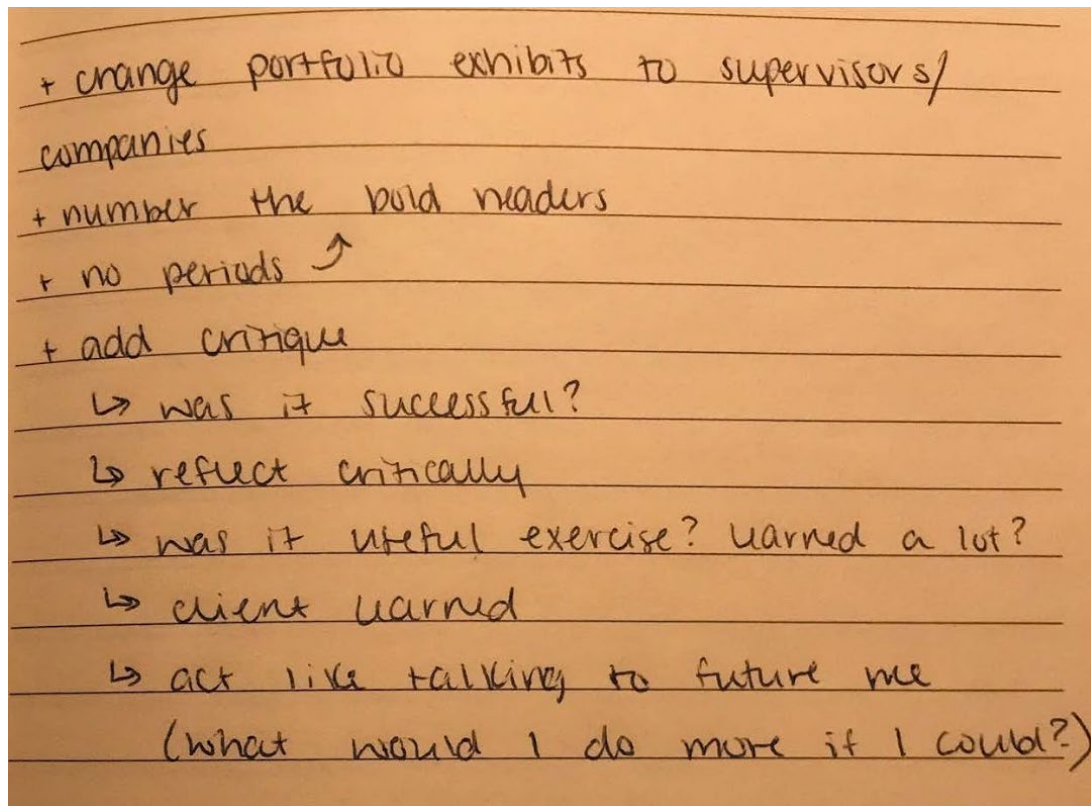 + change portfolio exhibits to supervisors/
companies
+ number the bold headers
+ no periods ⤴
+ add critique
↳ was it successful?
↳ reflect critically
↳ was it useful exercise? learned a lot?
↳ client learned
↳ act like talking to future me
(what would I do more if I could?)